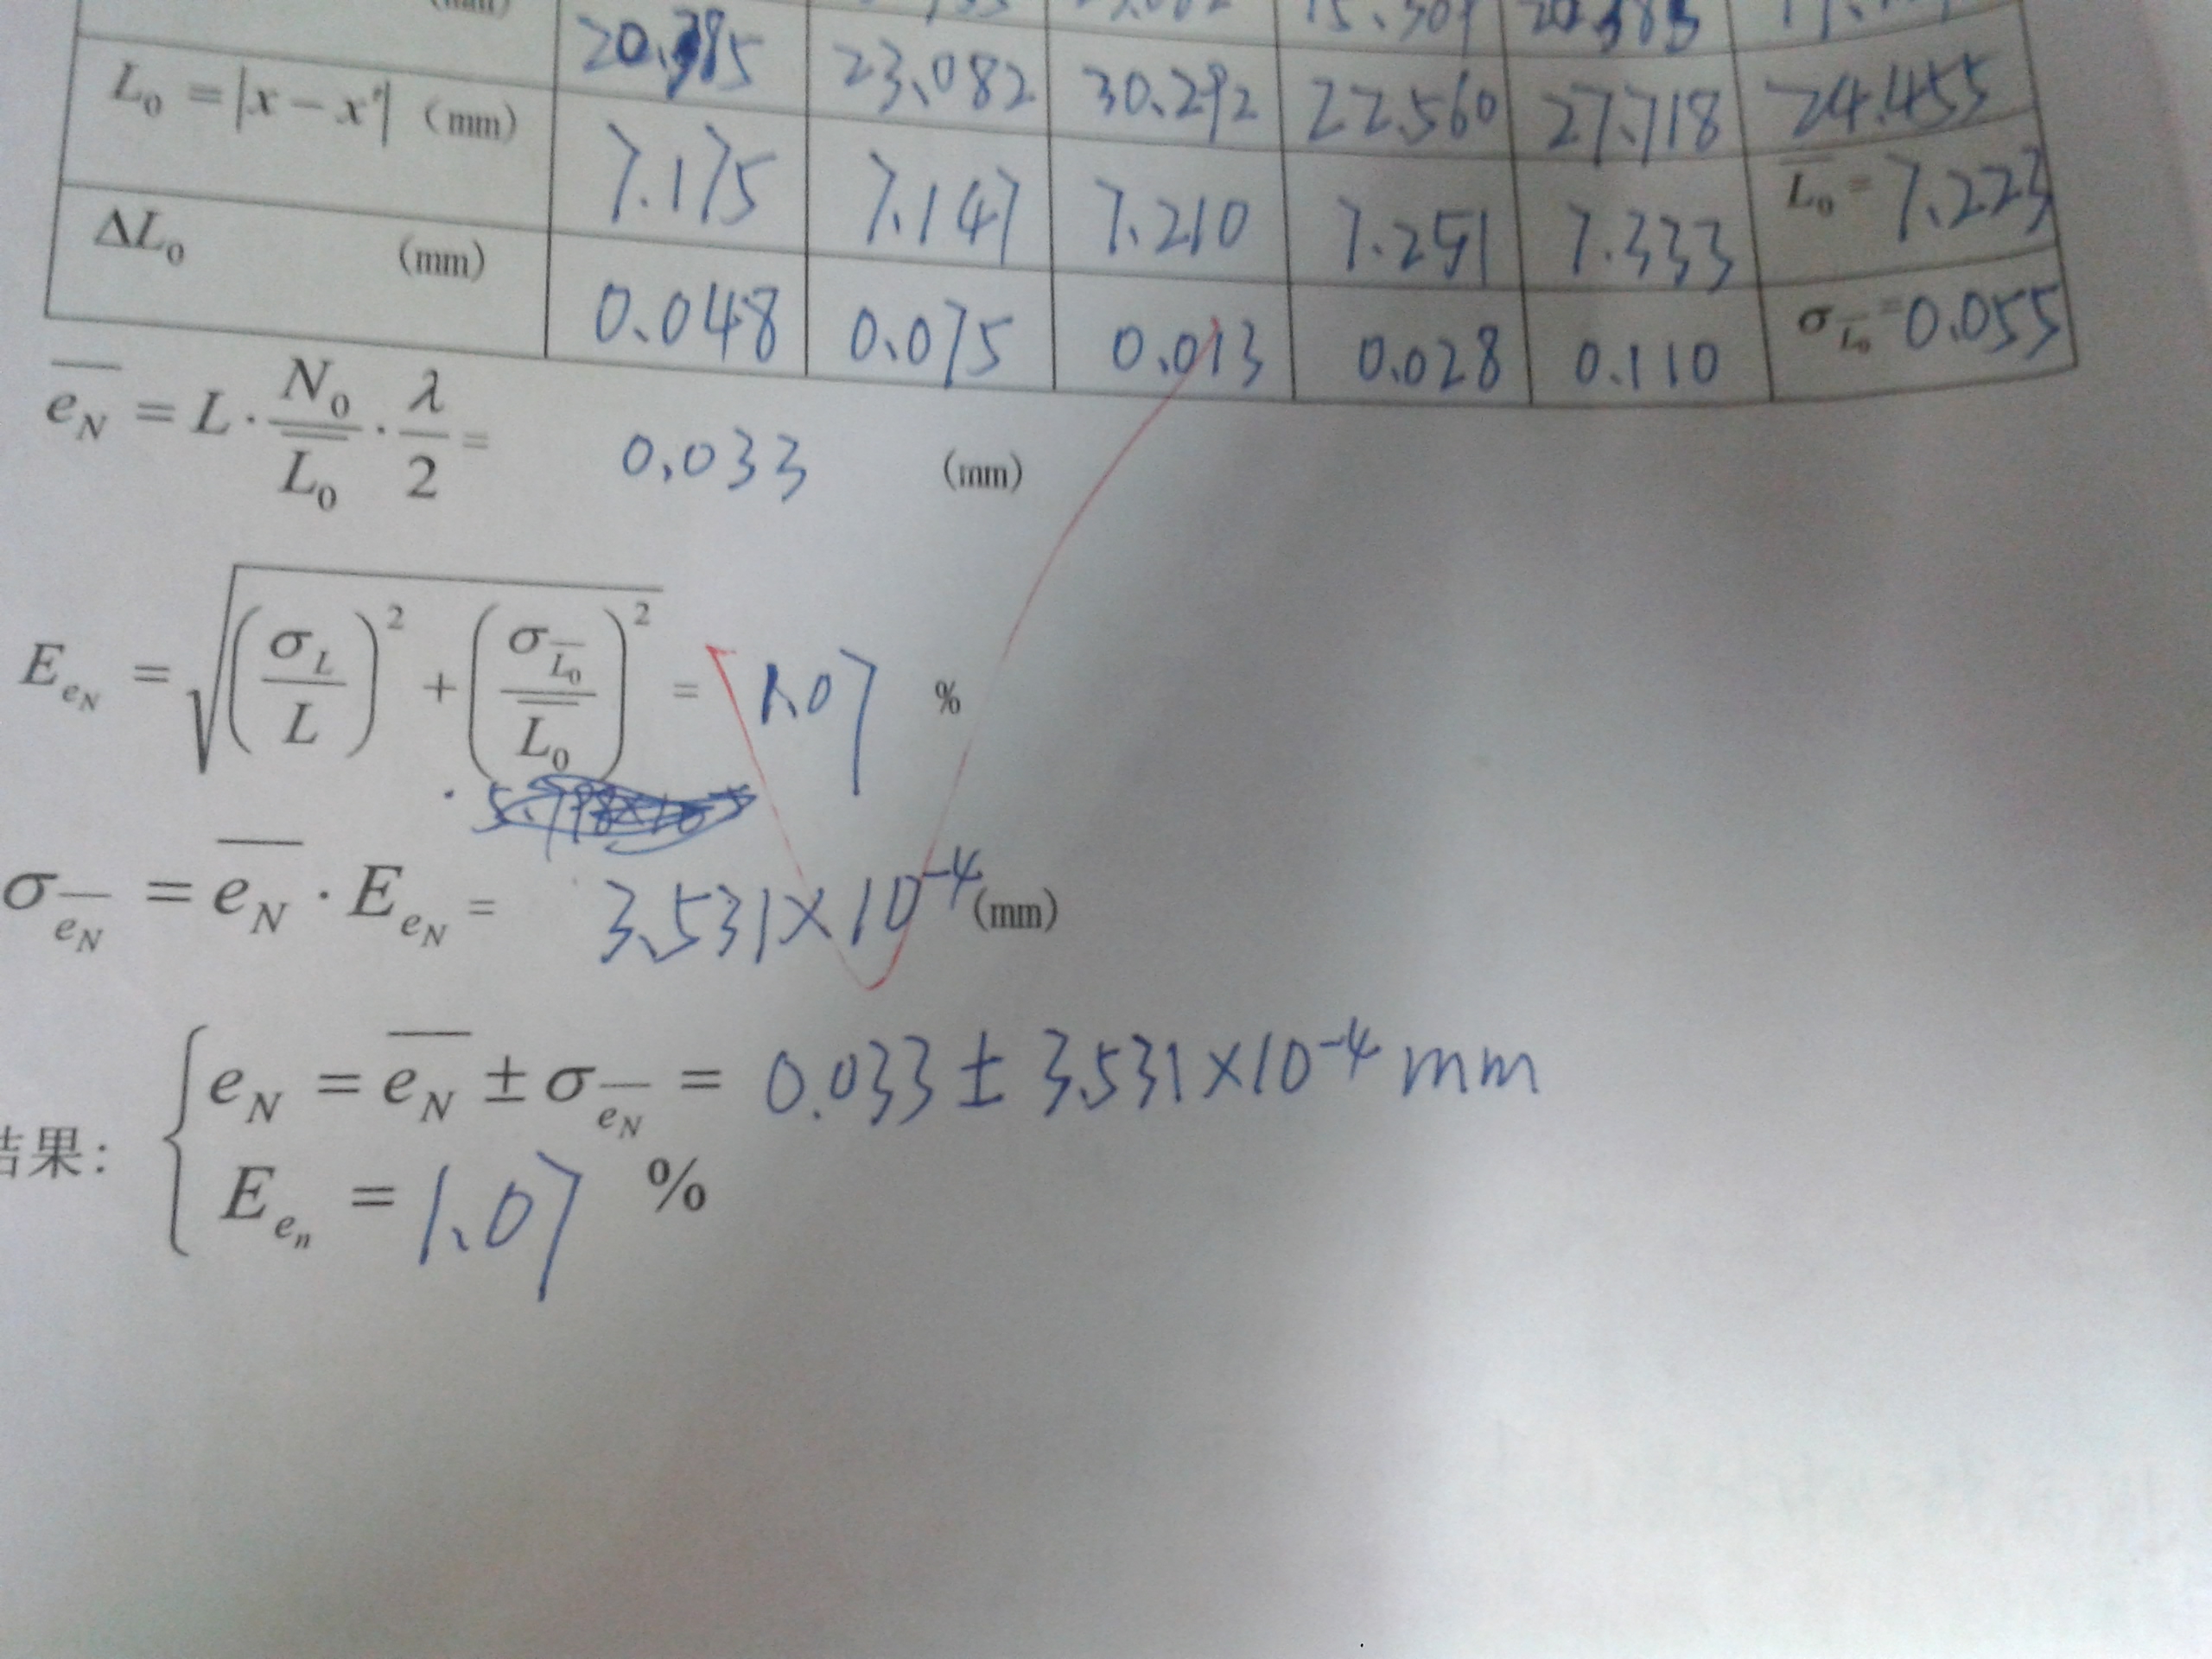 20.385 23.082 30.292 22.560 27.718 24.455
L₀ = |x − x'| (mm) 7.175 7.147 7.210 7.251 7.333 L̅₀ = 7.223
ΔL₀ (mm) 0.048 0.075 0.013 0.028 0.110 σ_L̅₀ = 0.055
e̅_N = L · N₀/L̅₀ · λ/2 = 0.033 (mm)
E_{e_N} = √((σ_L/L)² + (σ_L̅₀/L̅₀)²) = 1.07 %
σ_e̅_N = e̅_N · E_{e_N} = 3.531×10⁻⁴ (mm)
结果:
e_N = e̅_N ± σ_e̅_N = 0.033 ± 3.531×10⁻⁴ mm
E_{e_n} = 1.07 %